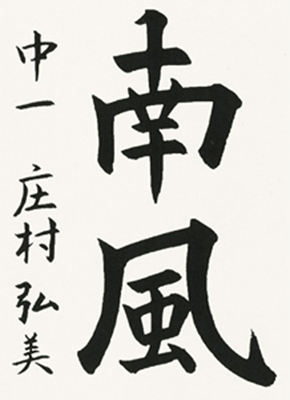 南風
中一 庄村弘美